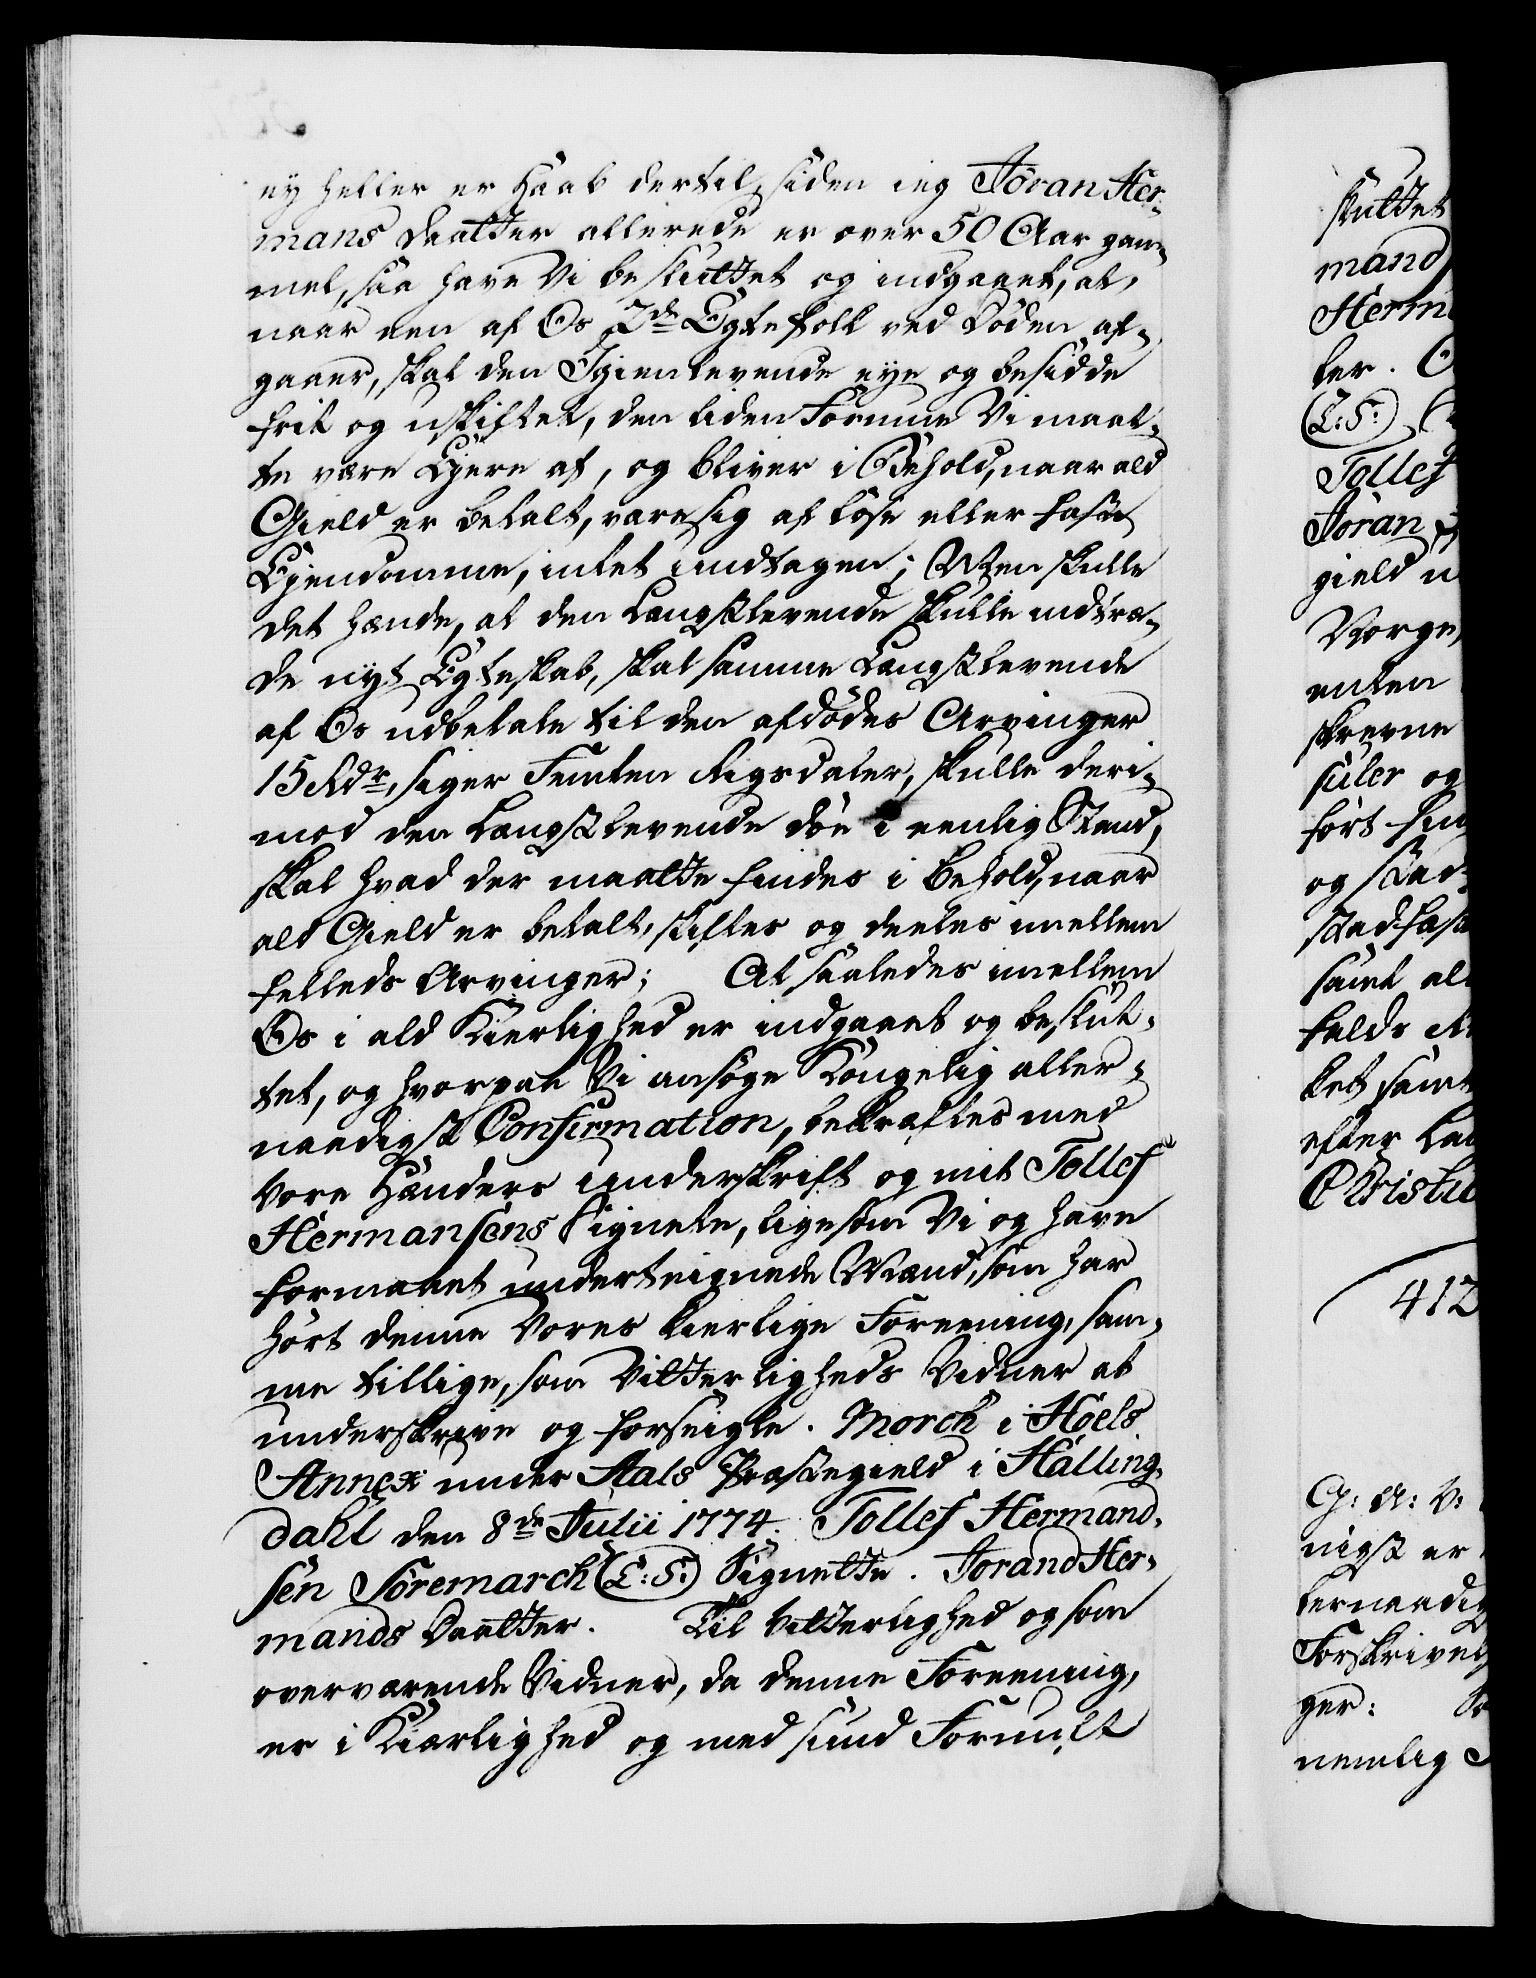 ey heller er Haab dertil, siden ieg Jöran Her-
mans Daatter allerede er over 50 Aar gam-
mel, saa have Vi besluttet og indgaaet, at,
naar een af Os 2de Egtefolk ved Döden af-
gaaer, skal den Igienlevende eye og besidde
frit og uskiftet, den liden Formue Vi maat-
te være Ejere af, og bliver i Behold, naar ald
Gield er betalt, være sig af löse eller faste
Ejendomme, intet undtagen; Men skulle
det hænde, at den Længstlevende skulle indtræ-
de nyt Egteskab, skal samme Længstlevende
af Os udbetale til den afdödes Arvinger
15 Rdr, siger Femten Rigsdaler, skulle deri-
mod den Længstlevende döe i eenlig Stand,
skal hvad der maatte findes i Behold, naar
ald Gield er betalt, skiftes og deeles imellem
felleds Arvinger; At saaledes imellem
Os i ald Kierlighed er indgaaet og beslut-
tet, og hvorpaa Vi ansöge Kongelig aller-
naadigst Confirmation, bekræftes med
Vore Hænders underskrift og mit Tollef
Hermansens Signete, ligesom Vi og have
formaaet underteignede Mænd, som har
hört denne Vores kierlige Foreening, sam-
me tillige, som Vitterligheds Vidner at
underskrive og forseigle. Morch i Hoels
Annex under Aals Præstegield i Halling-
dahl den 8de Julii 1774. Tollef Hermand-
sen Söremarch (L:S:) Signette. Jorand Her-
mands Daatter. Til Vitterlighed og som
overværende Vidner, da denne Foreening,
er i Kiærlighed og med sund Fornuft
sluttet
mand
Herm
ler.
(L:S:)
Tollef
Jöran
gield
Norge,
enten
skrevne
suler og
fört
og Stad-
stadfæst
samt al
falds
ket samt
efter
Christi
412
G: A: V:
nigst er
lernaadig
Forskrivel
ger:
nemlig